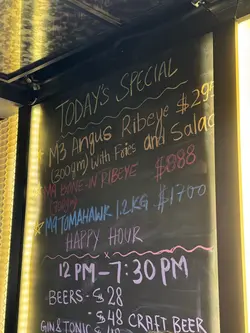 TODAY'S SPECIAL
M3 Angus Ribeye $29
(300gm) with Fries and Salad
M9 BONE-IN RIBEYE $888
M9 TOMAHAWK 1.2KG $1700
HAPPY HOUR
12 PM - 7:30 PM
BEERS - $28
$48 CRAFT BEER
GIN & TONIC $48